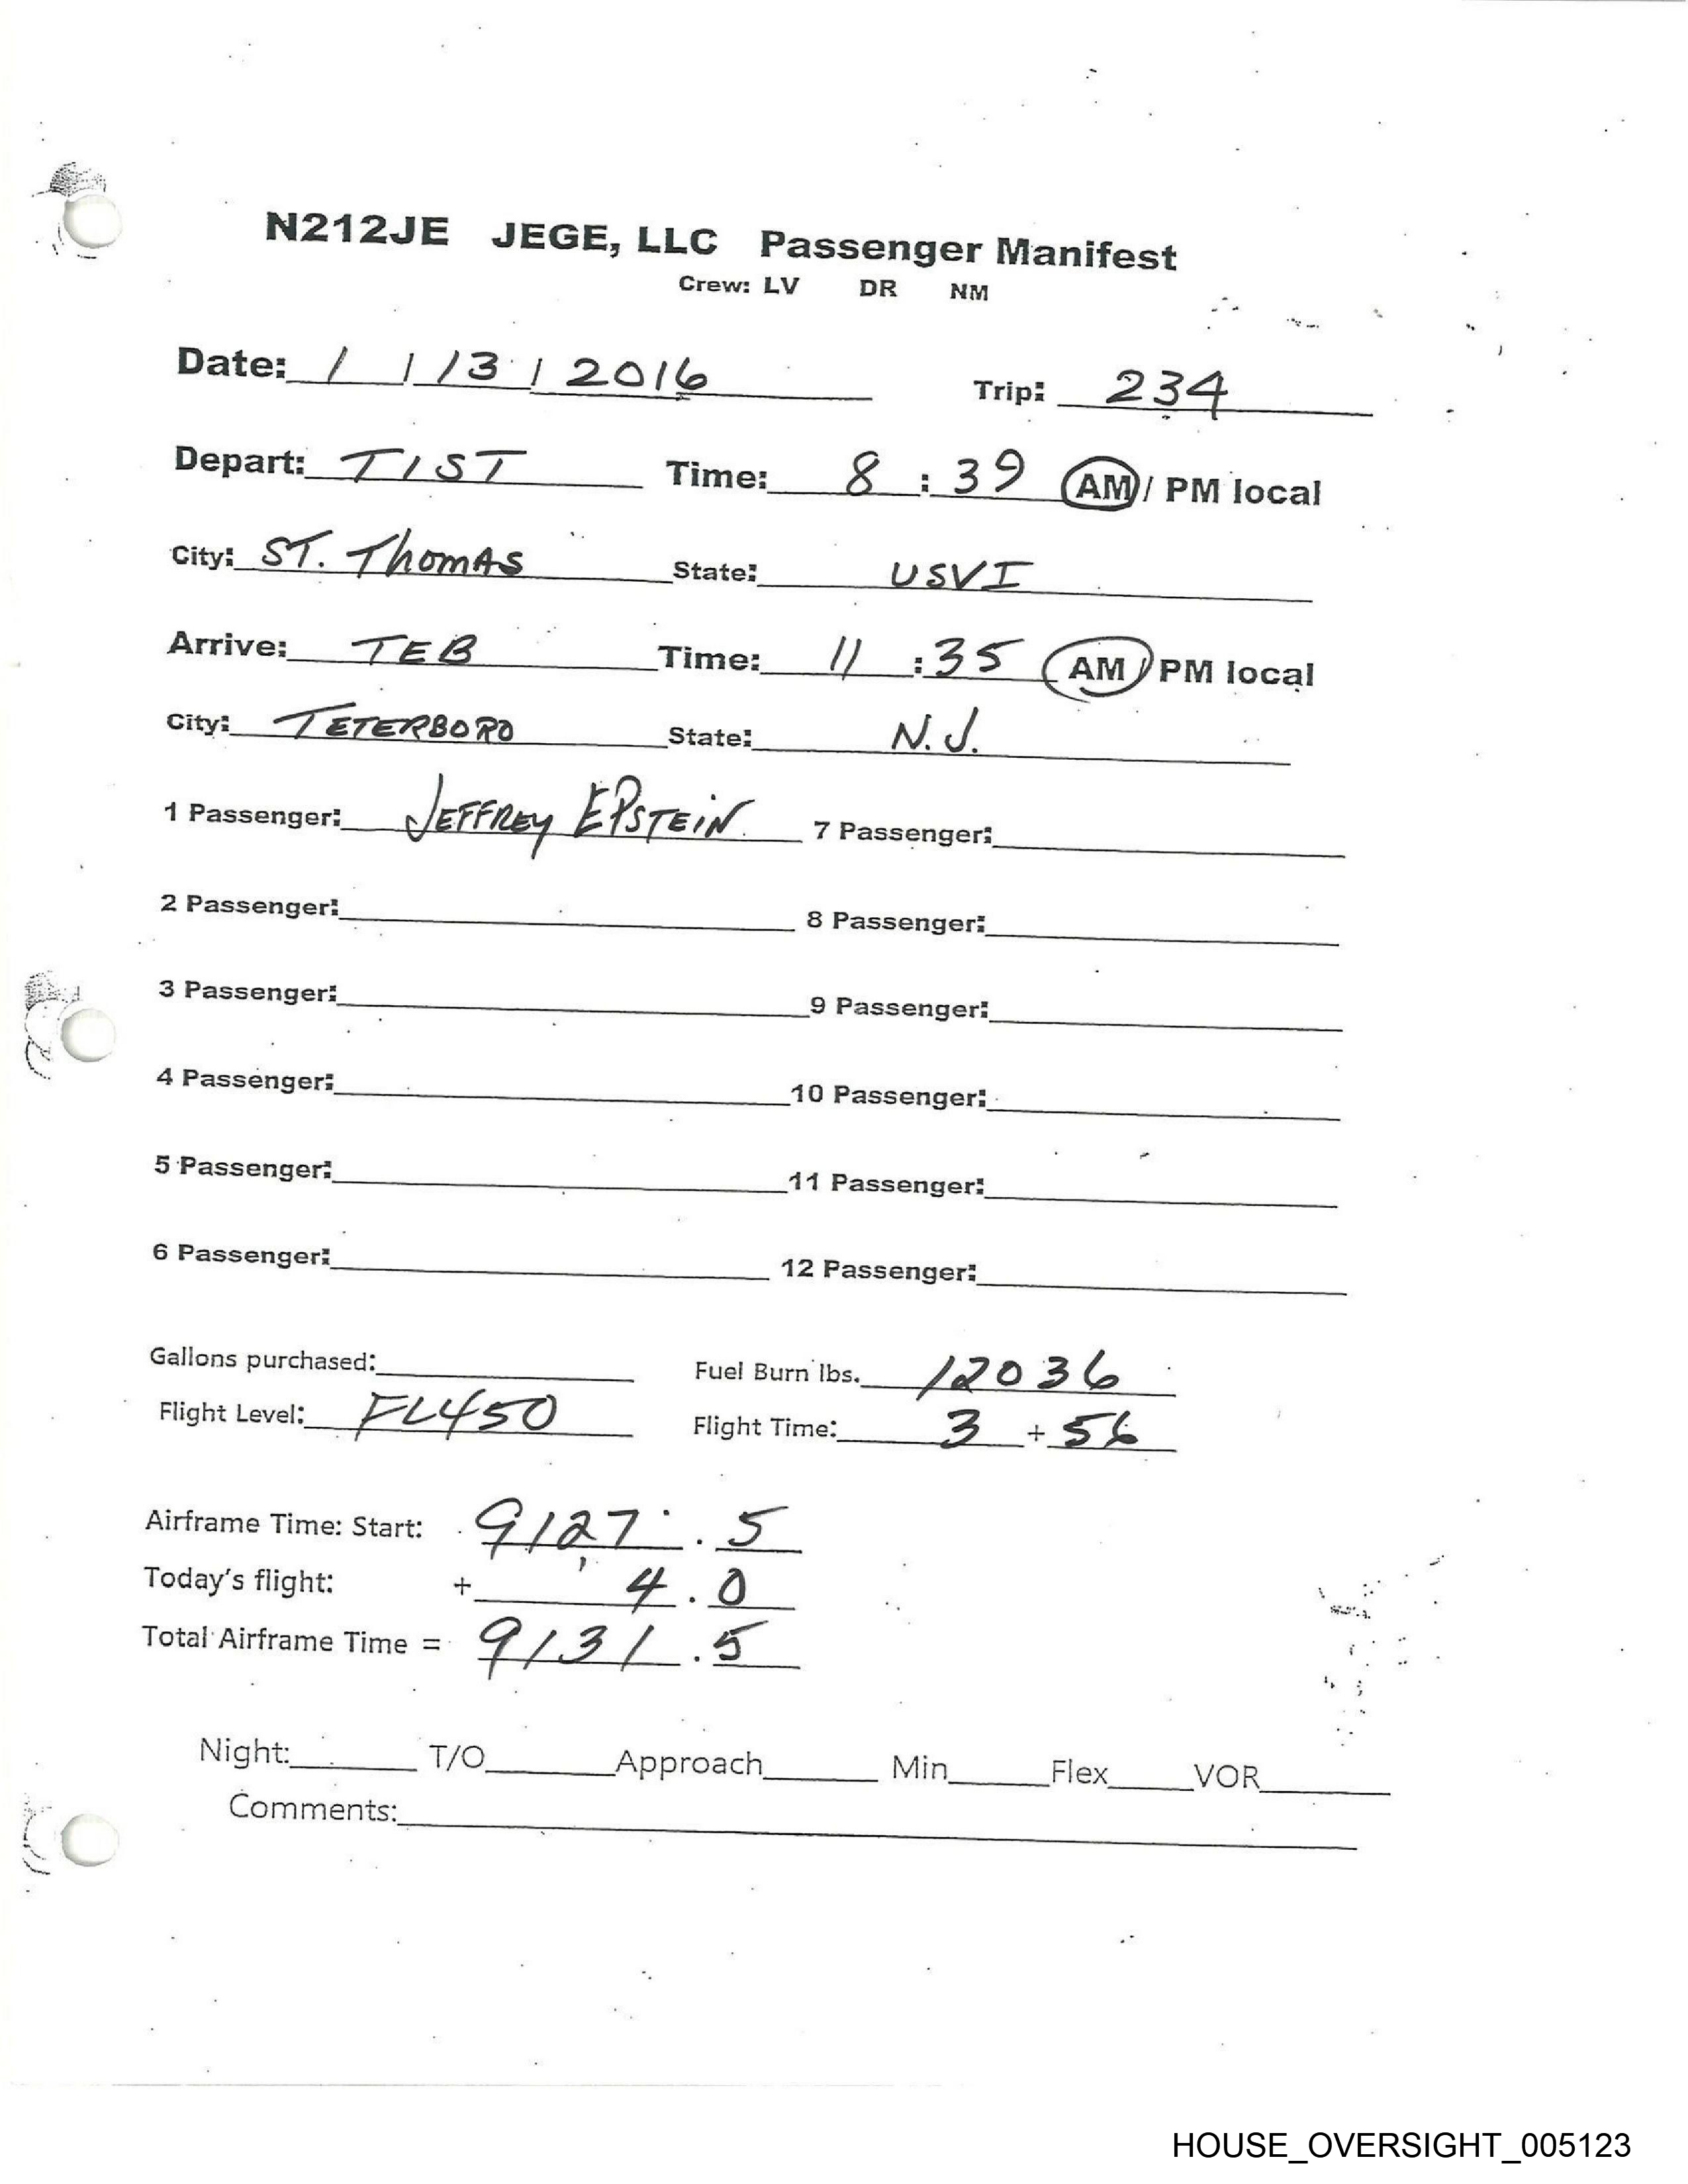 N212JE JEGE, LLC Passenger Manifest
Crew: LV DR NM
Date: 1 / 13 / 2016 Trip: 234
Depart: TIST Time: 8 : 39 AM / PM local
City: ST. THOMAS State: USVI
Arrive: TEB Time: 11 : 35 AM / PM local
City: TETERBORO State: N.J.
1 Passenger: JEFFREY EPSTEIN 7 Passenger:
2 Passenger: 8 Passenger:
3 Passenger: 9 Passenger:
4 Passenger: 10 Passenger:
5 Passenger: 11 Passenger:
6 Passenger: 12 Passenger:
Gallons purchased: Fuel Burn lbs. 12036
Flight Level: FL450 Flight Time: 3 + 56
Airframe Time: Start: 9127 . 5
Today's flight: + 4 . 0
Total Airframe Time = 9131 . 5
Night: T/O Approach Min Flex VOR
Comments:
HOUSE_OVERSIGHT_005123